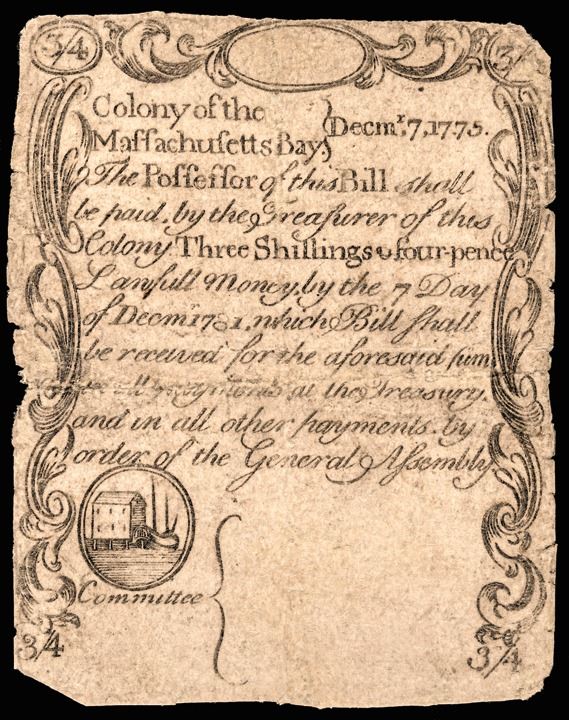 3/4 3/
Colony of the
Maſsachusetts Bay } Decmr. 7, 1775.
The Poſseſsor of this Bill shall
be paid, by the Treaſurer of this
Colony Three Shillings & four-pence
Lawfull Money, by the 7 Day
of Decmr. 1781, which Bill ſhall
be received for the aforesaid ſum
in all payments at the Treasury,
and in all other payments by
order of the General Aſsembly
Committee
3/4 3/4